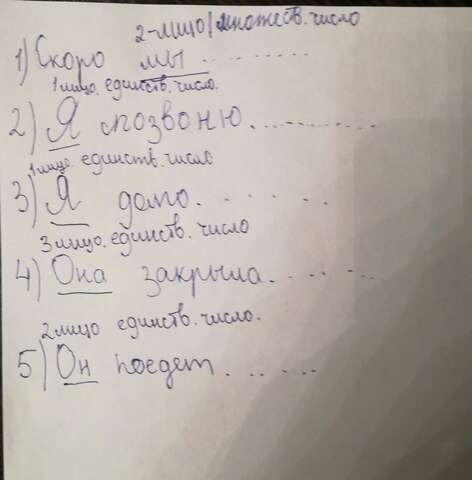 2-лицо/множеств. число
1) Скоро мы ..........
1 лицо. единств. число.
2) Я позвоню ..........
1 лицо. единств. число
3) Я долго. . . . . . .
3 лицо. единств. число
4) Она закрыла. . . . . .
2 лицо единств. число.
5) Он поедет. . . . . .